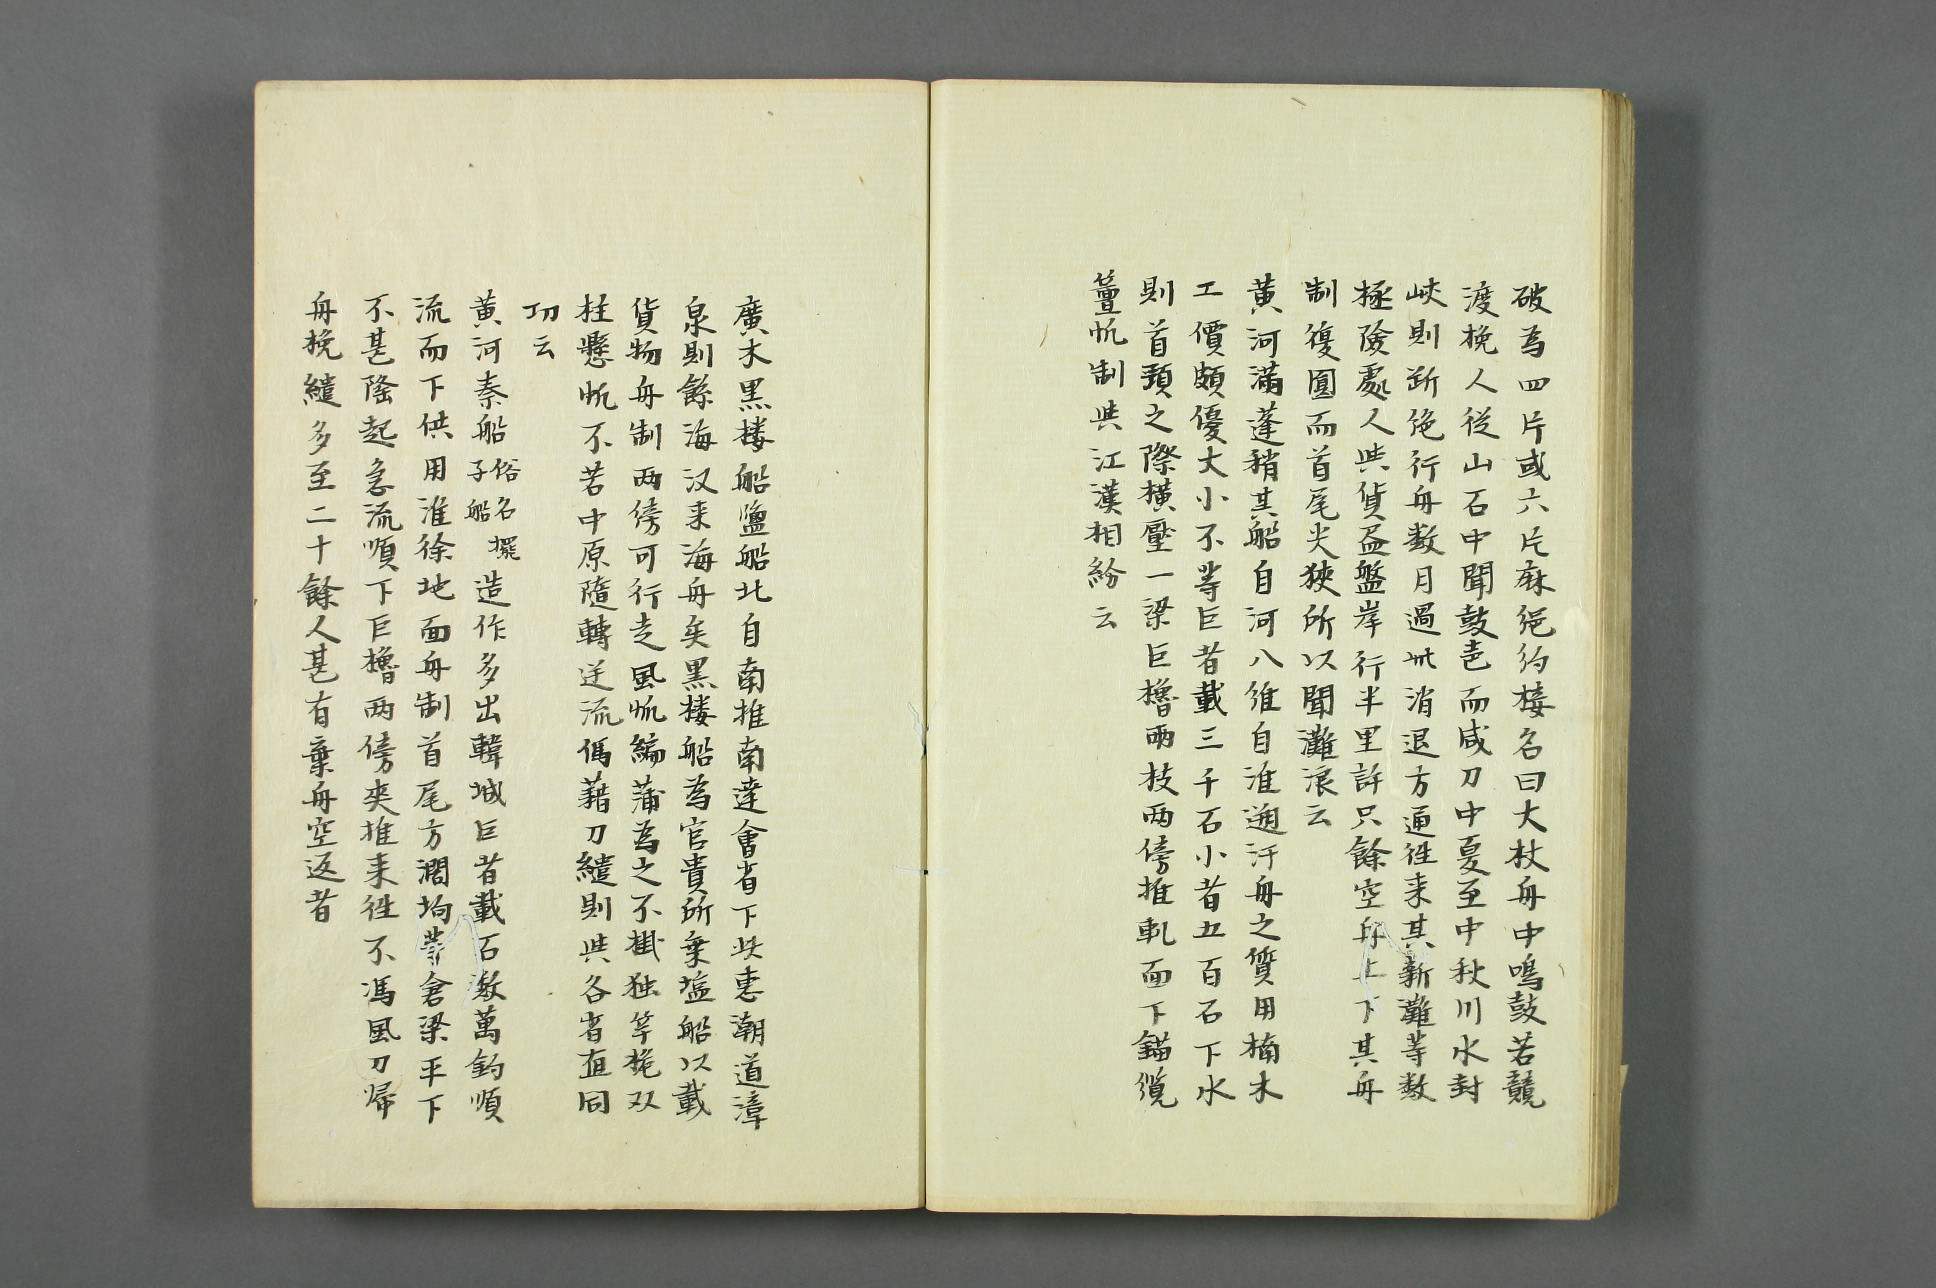 破為四片或六片麻絙約接名曰大杖舟中鳴鼓若競
渡挽人從山石中聞鼓声而咸刀中夏至中秋川水封
峽則斷絶行舟数月過此消退方通徃来其新灘等数
極險處人與貨盡盤岸行半里許只餘空舟上下其舟
制復圓而首尾尖狹所以闘灘浪云
黄河滿蓬稍其船自河入維自淮遡汗舟之質用楠木
工價頗優大小不等巨者載三千石小者五百石下水
則首頸之際横壓一梁巨櫓两枝两傍推軋而下錨纜
簹帆制與江漢相紛云
廣木黒楼船塩船北自南推南達會省下此惠潮道漳
泉則餘海汊来海舟矣黒楼船為官貴所乗塩船以載
貨物舟制两傍可行走風帆編蒲為之不掛独竿桅双
柱懸帆不若中原隨轉逆流偶藉刀纜則與各省直同
功云
黄河秦船俗名擺子船造作多出韓城巨者載石数萬鈞順
流而下供用淮徐地面舟制首尾方濶均等倉梁平下
不甚隆起急流順下巨櫓两傍夾推来徃不馮風刀帰
舟挽纜多至二十餘人甚有棄舟空返者